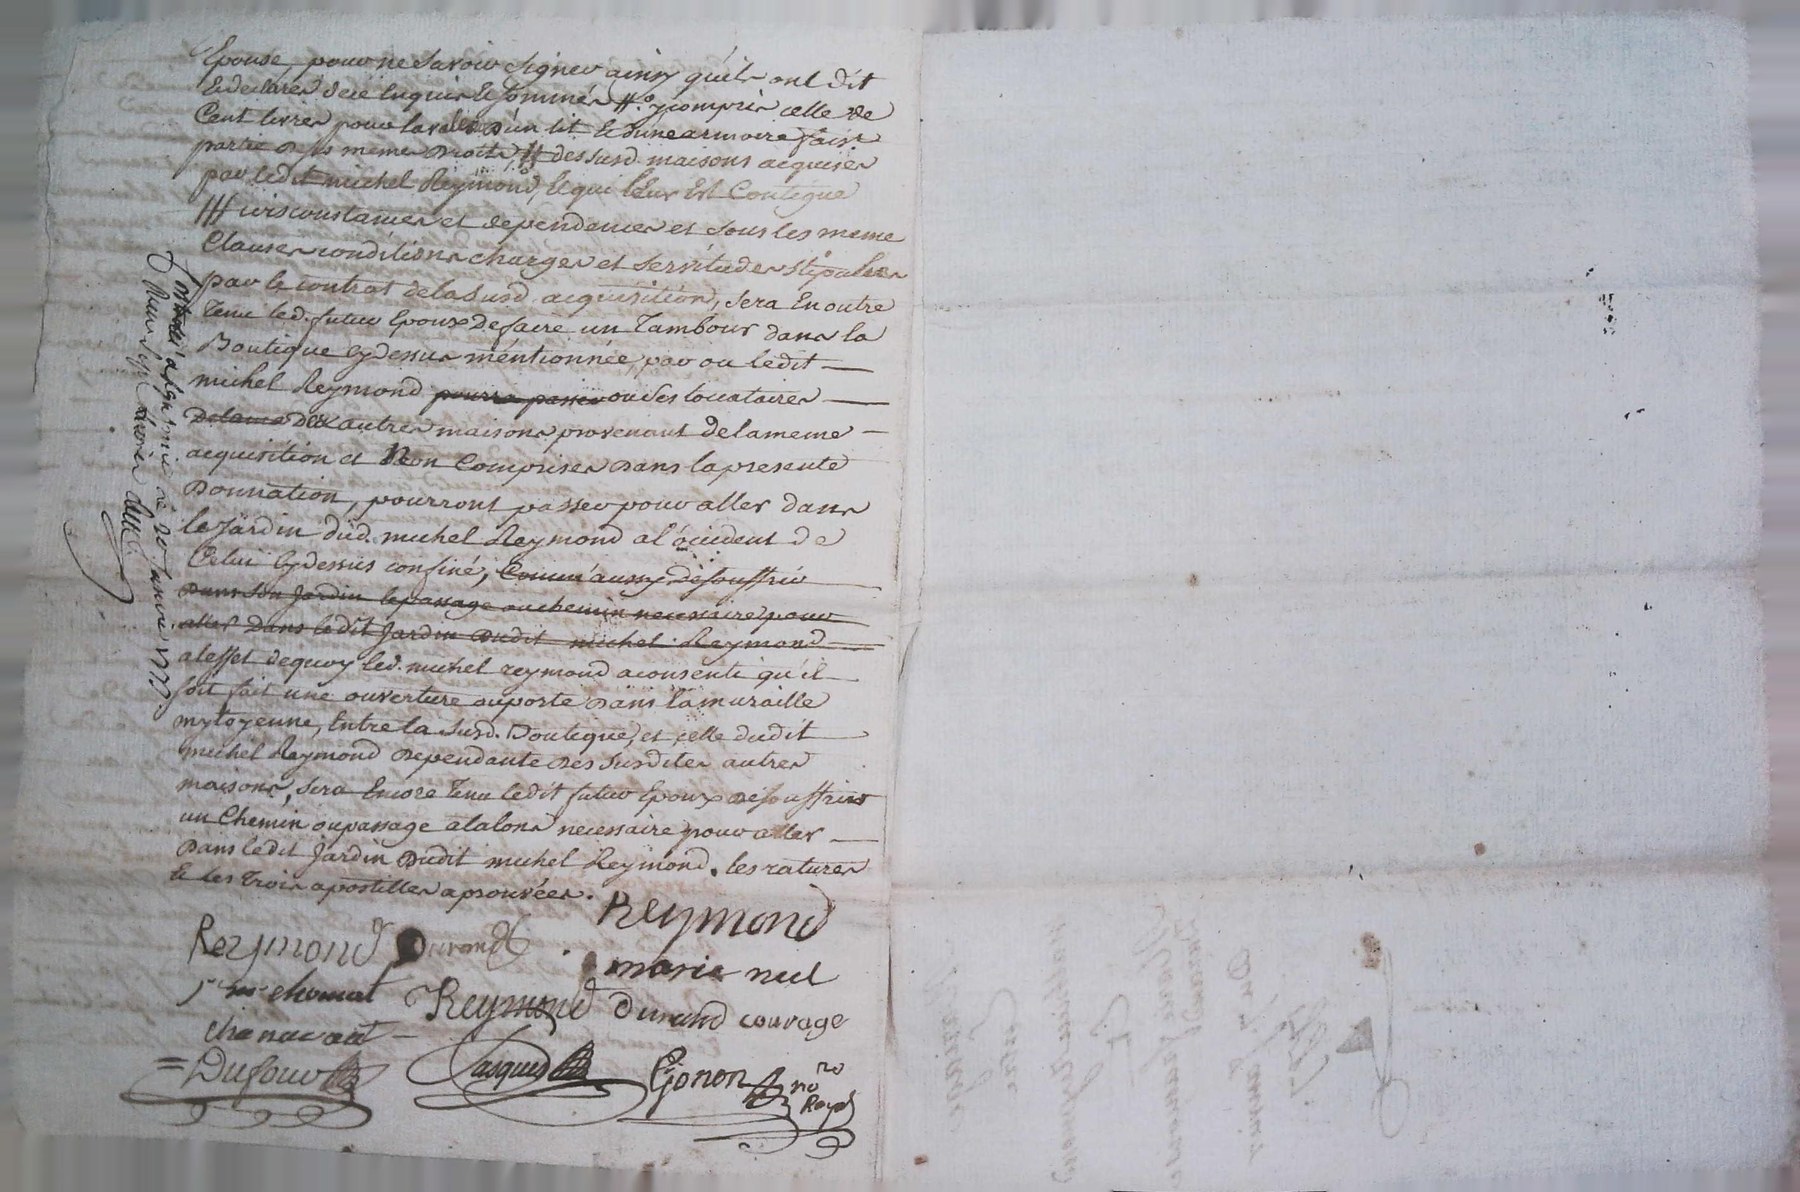 Epouse, pour ne savoir signer ainsy qu'ils ont dit
et declaré de ce enquis et sommés #.º ycompris celle de
Cent livres pour la valeur d'un lit et d'une armoire fais.t
partie de ses meme droits # des susd. maisons acquises
par ledit michel Reymond, et qui leur est Contigue
### circonstances et dependences et sous les meme
Clauses conditions charges et servitudes stipulées
par le contrat de la susd. acquisition, sera En outre
Tenu led. futur Epoux de faire un Tambour dans la
Boutique cy dessus mentionnée, par ou ledit
michel Reymond pourra passer ou ses locataires
de la me des autres maisons provenant de la meme
acquisition et Non Comprises dans la presente
Donnation, pourront passer pour aller dans
le Jardin dud. michel Reymond a l'occident de
Celui cy dessus confiné, Comm' aussy de souffrir
dans son Jardin le passage ou chemin necessaire pour
aller dans ledit Jardin dudit michel Reymond
a l'effet de quoy led. michel reymond a consenti qu'il
soit fait une ouverture ou porte dans la muraille
mytoyenne, Entre la susd. Boutique, et celle dudit
michel Reymond dependante des susdites autres
maisons, sera Encore Tenu ledit futur Epoux de souffrir
un Chemin ou passage a talons necessaire pour aller
dans ledit Jardin dudit michel Reymond. les ratures
et les Trois apostilles aprouvées.
Reymond
Reymond Durand
marie
chomat Reymond Durand courage
chanavat
Dufour Jasques Gonon no.re Royal
le 20 Janvier 177